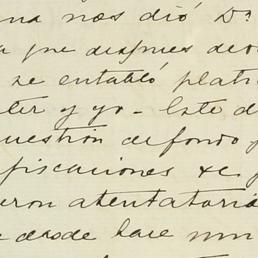 una nos dió Da
a que despues de
se entabló plati
ter y yo - Este d
uestión de fondo y
fiscaciones &c y
eron atentatoria
e desde hace un